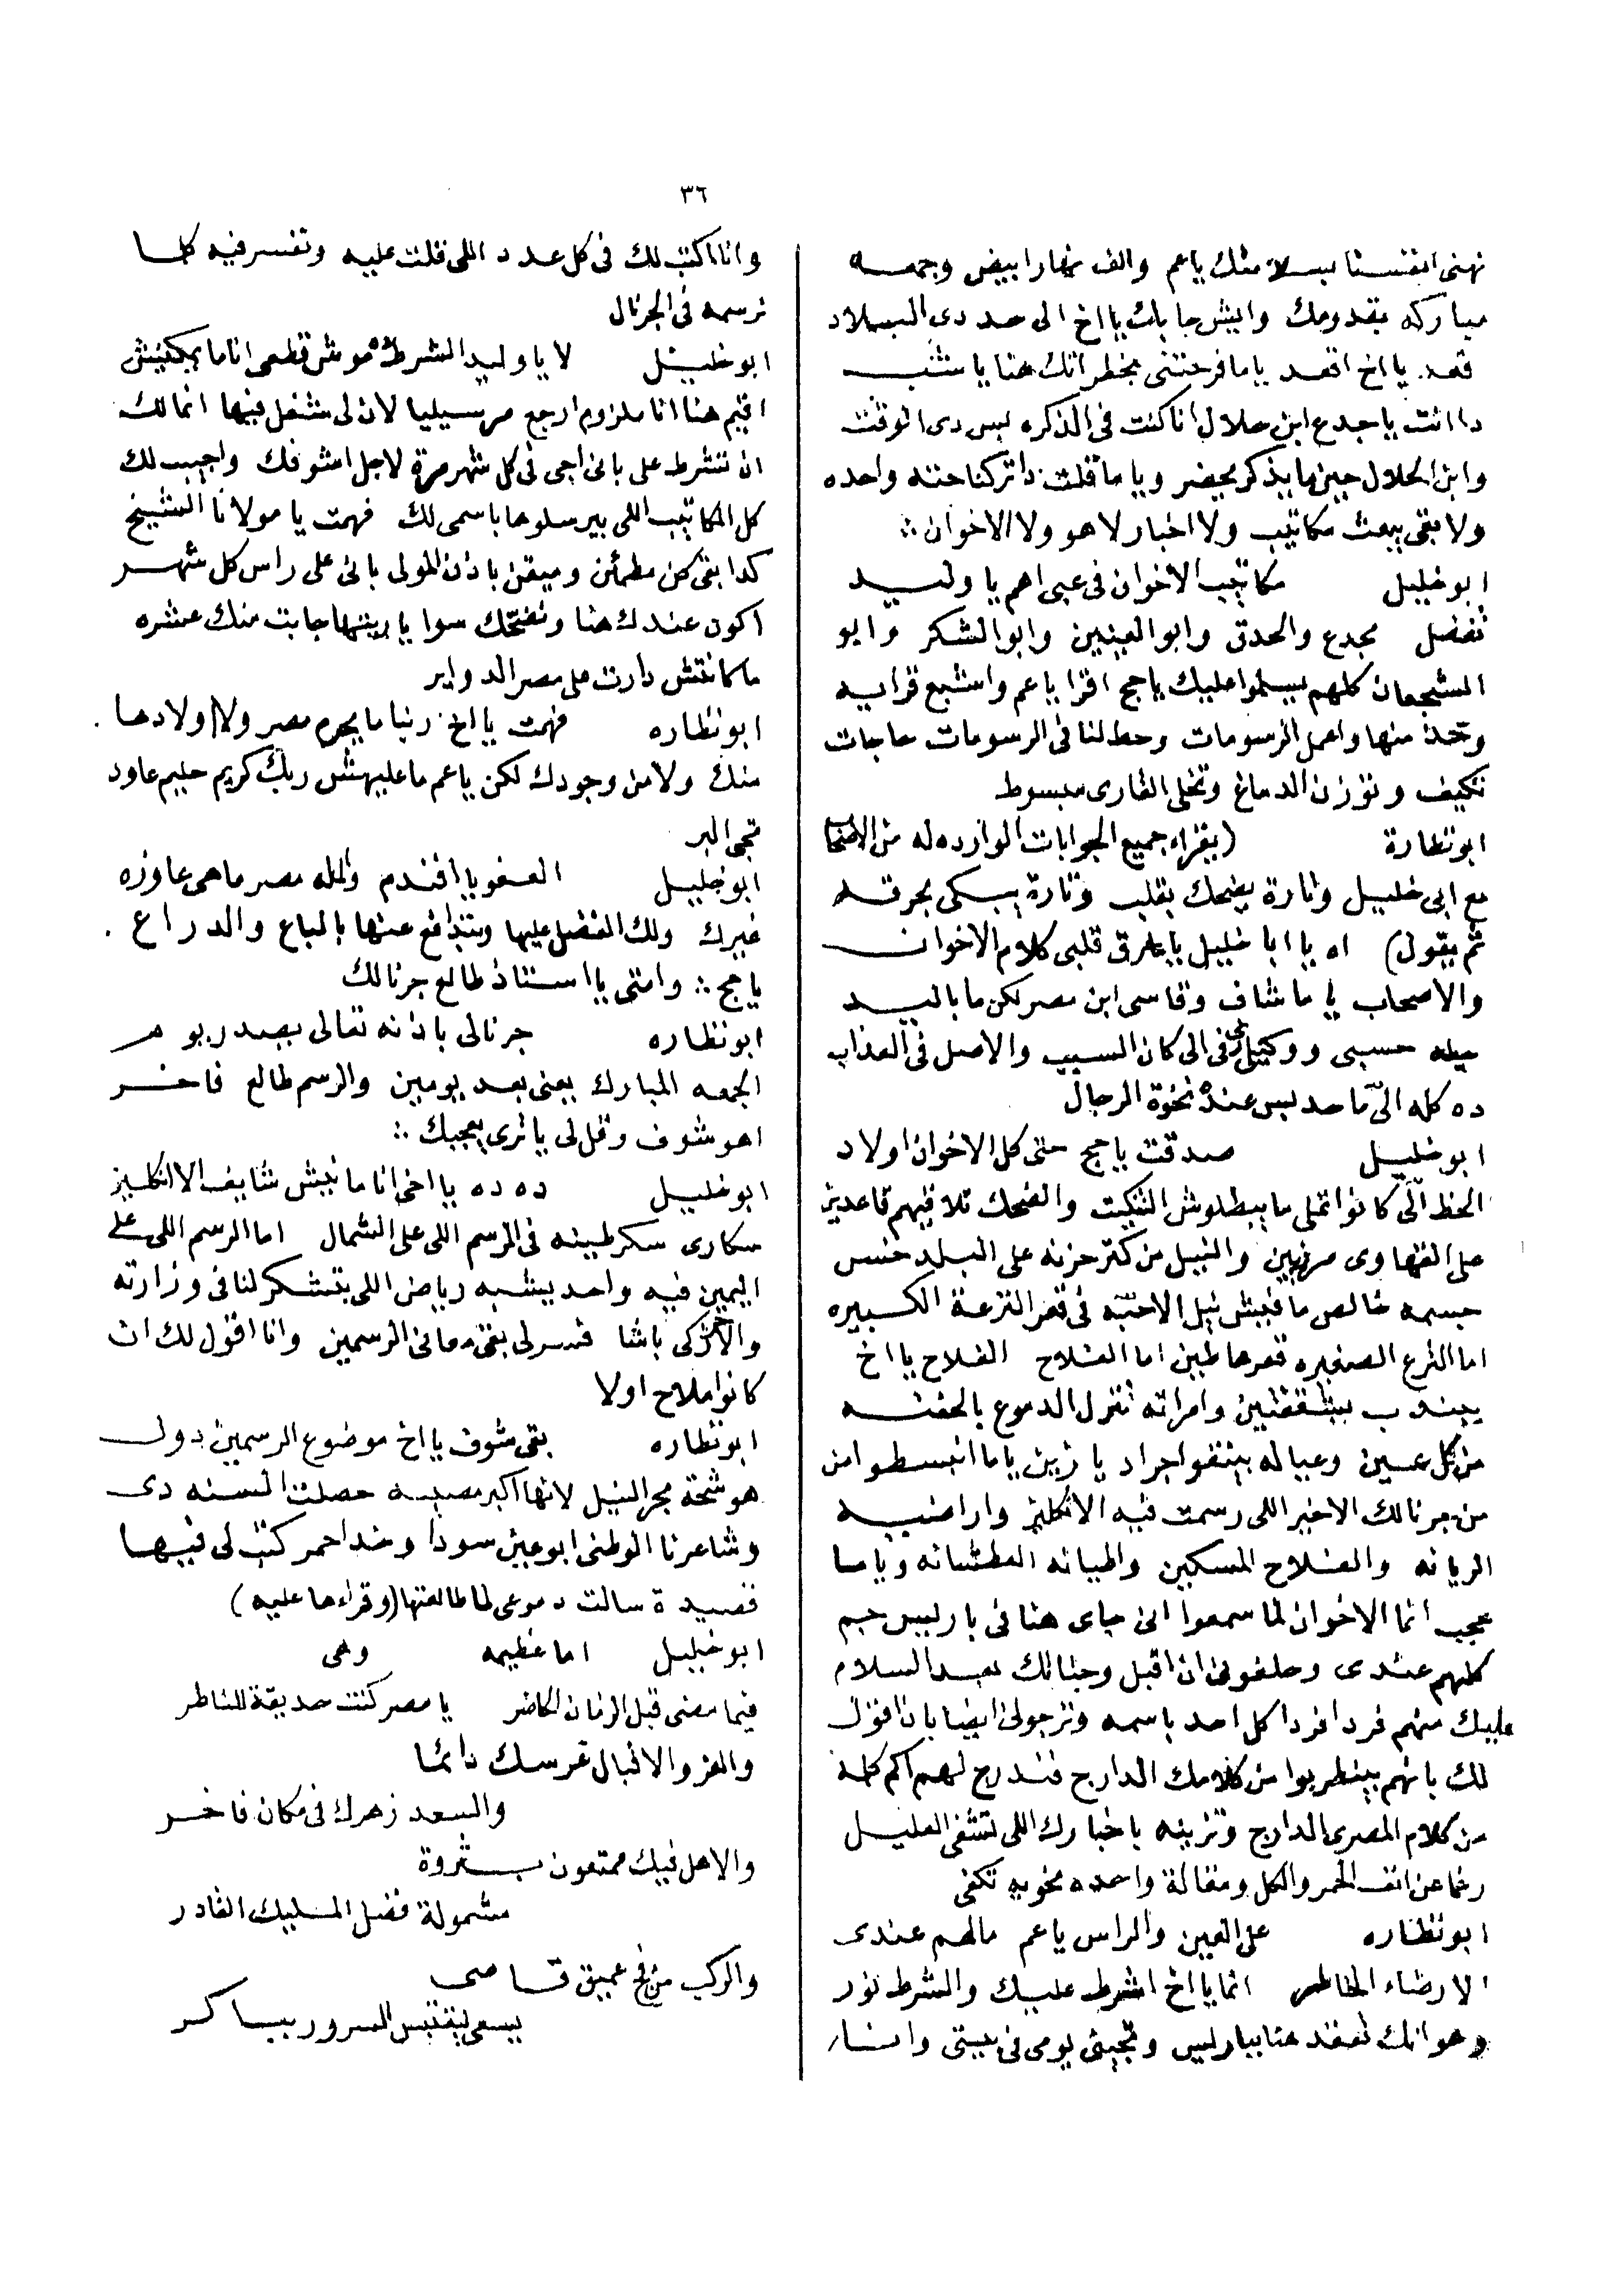 ٣٦
نهنى انفسنا بسلامتك ياعم والف نهار ابيض وجمعه
مباركه بقدومك وايش جابك يا اخ الى حد دى البلاد
قعد. يا اخ اقعد ياما فرحتنى بخطر انك هنا يا شب
دا انت يا جدع ابن حلال انا كنت فى الذكره لبس دى الوقت
وابن الحلال حين ما يذكر يحضر وياما قلت دا تركنا حته واحده
ولا بقى يبعث مكاتيب ولا اخبار لا هو ولا الاخوان ∴
ابو خليل مكاتيب الاخوان فى عبى اهم يا وليد
تفضل مجدع والحدق وابو العينين وابو الشكر وابو
الشجعان كلهم بيسلموا عليك ياحج اقرا ياعم واشبع قرايه
وخذ منها واعمل الرسومات وحط لنا فى الرسومات حاجات
تكيف وتوزن الدماغ وتخلى القارى مبسوط
ابو نظارة (يقراء جميع الجوابات الوارده له من الاصحاب
مع ابى خليل وتارة يضحك بقلب وتارة يبكى بحرقه
ثم يقول) اه يا ابا خليل ياما حرق قلبى كلام الاخوان
والاصحاب ياما شاف وقاسى ابن مصر لكن ما باليد
حيله حسبى ووكيلى ربى فى الى كان السبب والاصل فى العذاب
ده كله الىّ ما حد لبس عنده نخوة الرجال
ابو خليل صدقت ياحج حتى كل الاخوان اولاد
الحظ الىّ كانوا تملى ما يبطلوش التنكيت والضحك تلاقيهم قاعدين
على القهاوى مرنهين والنيل من كتر حزنه على البلد خس
جسمه خالص ما فيش نيل الا حته فى قعر الترعة الكبيره
اما الترع الصغيره قعرها طين اما الفلاح الفلاح يا اخ
بيندب بيتقفتين وامراته تنزل الدموع بالحفنه
من كل عين وعياله بينفوا جراد يا زين ياما انبسطوا من
من جرنالك الاخير اللى رسمت فيه الانكليز واراضيه
الريانه والفلاح المسكين واطيانه العطشانه وياما
عجب انما الاخوان لما سمعوا انى جاى هنا فى باريس جم
كلهم عندى وحلفونى ان اقبل وجناتك بعد السلام
عليك منهم فردا فردا كل احد باسمه وترجونى ايضا بان اقول
لك بانهم بينطربوا من كلامك الدارج فتدرج لهم اكم كلمة
من كلام المصرى الدارج وتزينه باخبارك اللى تشفى العليل
رغما عن انف الحمر والكل ومقالة واحده نحويه تكفى
ابو نظاره على العين والراس ياعم مالهم عندى
الا رضاء الخاطر انما يا اخ اشرط عليك والشرط نور
وهو انك تقعد هنا بباريس وتجينى يومى فى بيتى وانا
وانا اكتب لك فى كل عدد اللى قلت عليه وتفسر فيه كلما
ترسمه فى الجرنال
ابو خليل لا يا وليد الشرط ده موش قطعى انا ما يمكنيش
اقيم هنا انا ملزوم ارجع مرسيليا لان لى شغل فيها انما لك
ان تشرط على بانى اجى فى كل شهر مرة لاجل اشوفك واجيب لك
كل المكاتيب اللى بيرسلوها باسمى لك فهمت يا مولانا الشيخ
كدا بقى كن مطمئن وميقن باذن المولى بانى على راس كل شهر
اكون عندك هنا ونضحك سوا يا ريتها جابت منك عشره
ما كانتش دارت على مصر الدواير
ابو نظاره فهمت يا اخ ربنا ما يحرم مصر ولا اولادها
منك ولا من وجودك لكن ياعم ما عليهش ربك كريم حليم عاود
تجى البر
ابو خليل العفو يا افندم والله مصر ما هى عاوزه
غيرك ولك الفضل عليها وبتدافع عنها بالباع والدراع
ياحج ∴ وامتى يا استاذ طالع جرنالك
ابو نظاره جرنالى باذنه تعالى يصدر يوم
الجمعه المبارك يعنى بعد يومين والرسم طالع فاخر
اهو شوف وقل لى يا ترى يعجبك ∴
ابو خليل ده ده يا اخى انا مانيش شايف الا انكليز
سكارى سكر طينه فى الرسم اللى على الشمال اما الرسم اللى على
اليمين فيه واحد يشبه رياض اللى بتشكر لنا فى وزارته
والاخر زكى باشا فسر لى بقى معانى الرسمين وانا اقول لك ان
كانوا ملاح اولا
ابو نظاره بقى شوف يا اخ موضوع الرسمين دول
هو شحة مجر النيل لانها اكبر مصيبه حصلت السنه دى
وشاعرنا الوطنى ابو عين سودا وخد احمر كتب لى فيها
قصيدة سالت دموعى لما طالعتها (وقراءها عليه)
ابو خليل اما عظيمه وهى
فيما مضى قبل الزمان الحاضر يا مصر كنت حديقة للناظر
والعز والاقبال غرسك دائما
والسعد زهرك فى مكان فاخر
والاهل فيك ممتعون بثروة
مشمولة فضل المليك القادر
والركب من فج عميق قاصى
يسعى ليقتبس السرور يباكر